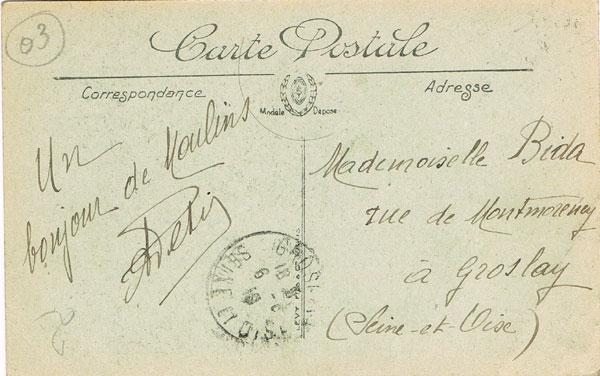 03
Carte Postale
Correspondance
Adresse
Modèle Déposé
Un
bonjour de Moulins
Mademoiselle Bida
rue de Montmorency
à Groslay
(Seine-et-Oise)
GROSLAY
SEINE ET OISE
2